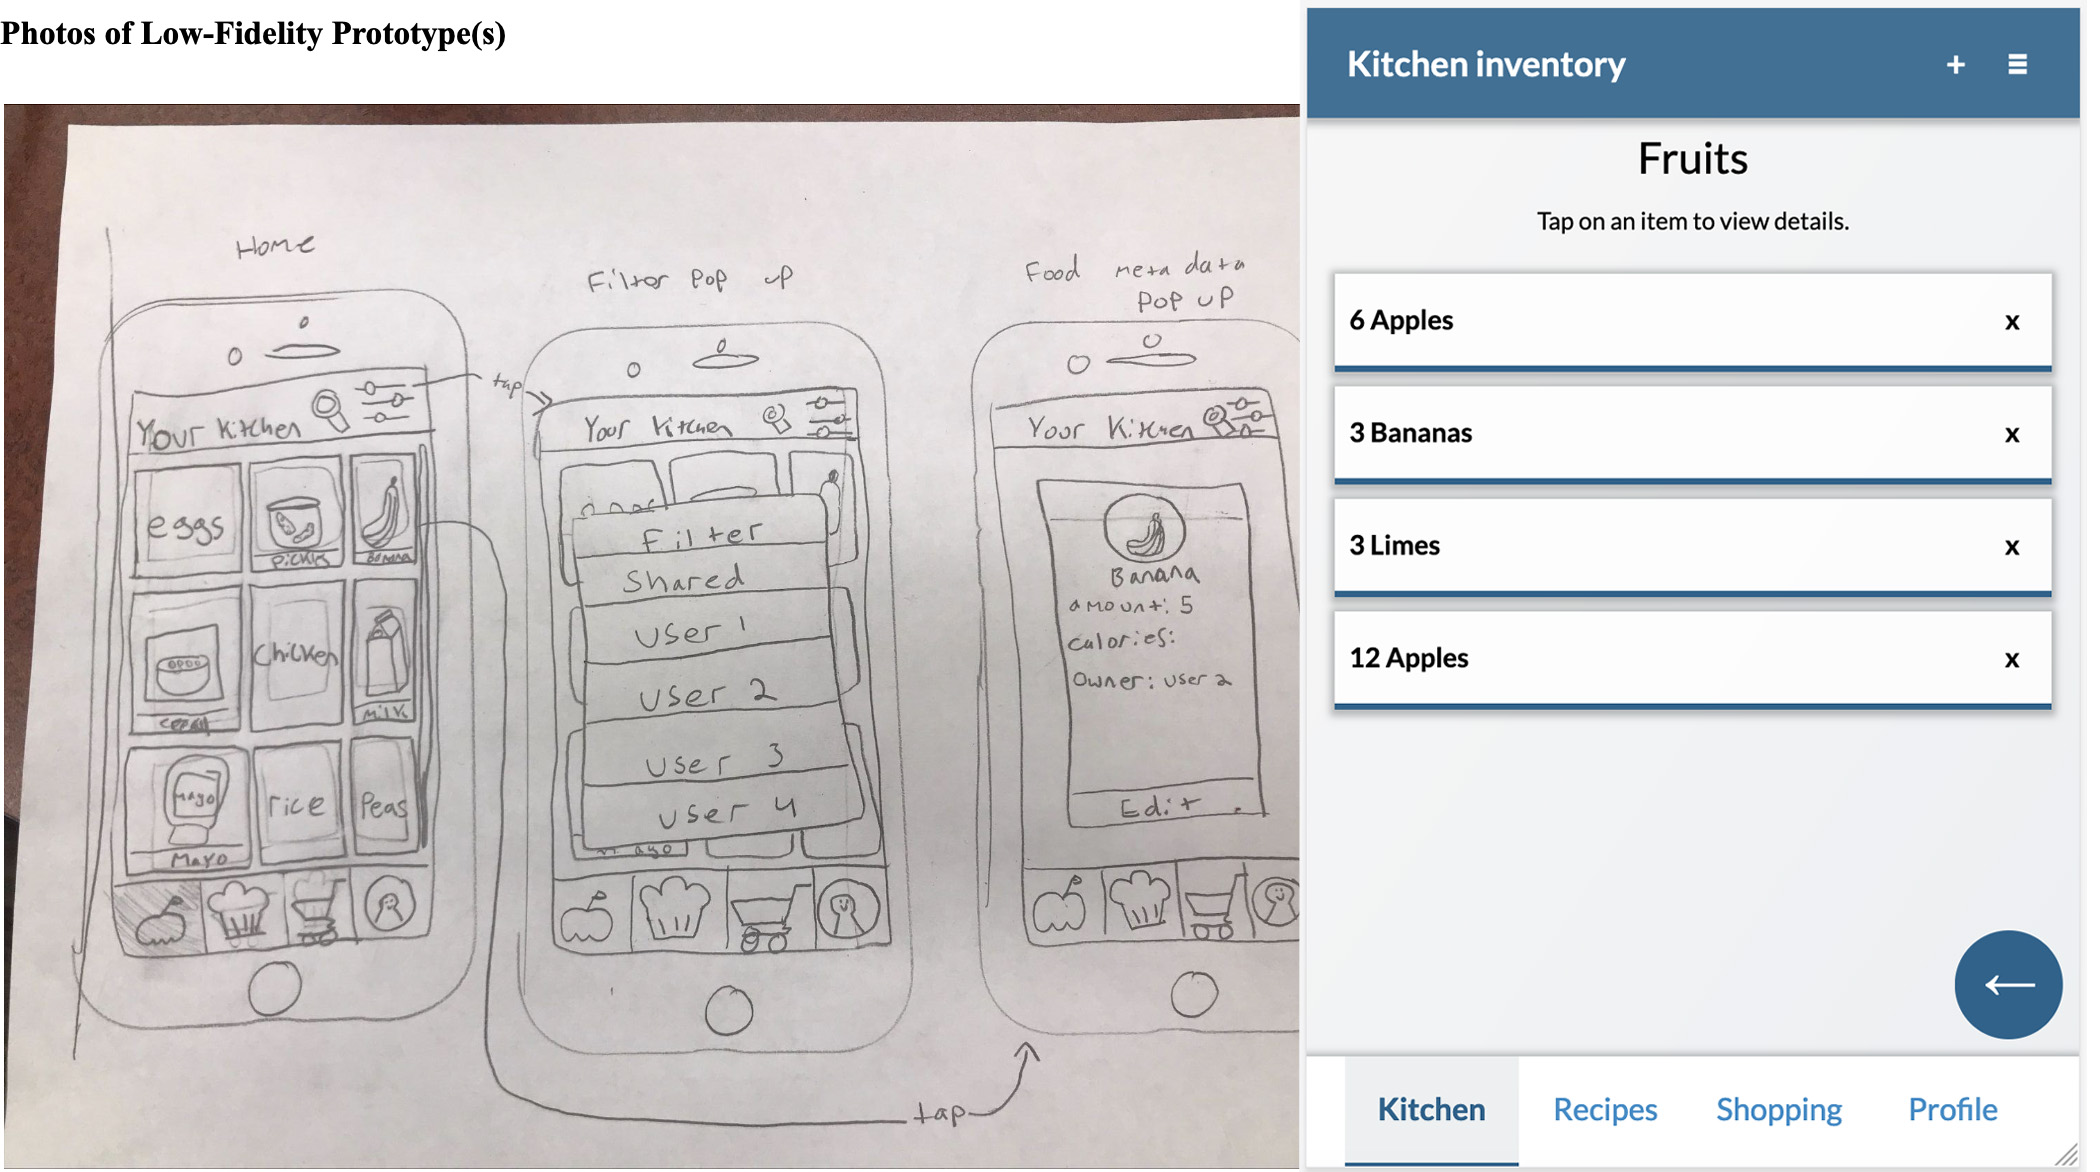 Photos of Low-Fidelity Prototype(s)
Home
Your Kitchen
eggs
Pickles
Banana
Cereal
Chicken
Milk
Mayo
Mayo
rice
Peas
tap
Filter Pop up
Your Kitchen
Filter
Shared
User 1
User 2
User 3
User 4
Mayo
Food meta data
Pop up
Your Kitchen
Banana
amount: 5
calories:
Owner: User 2
Edit
tap
Kitchen inventory
+
Fruits
Tap on an item to view details.
6 Apples x
3 Bananas x
3 Limes x
12 Apples x
Kitchen Recipes Shopping Profile